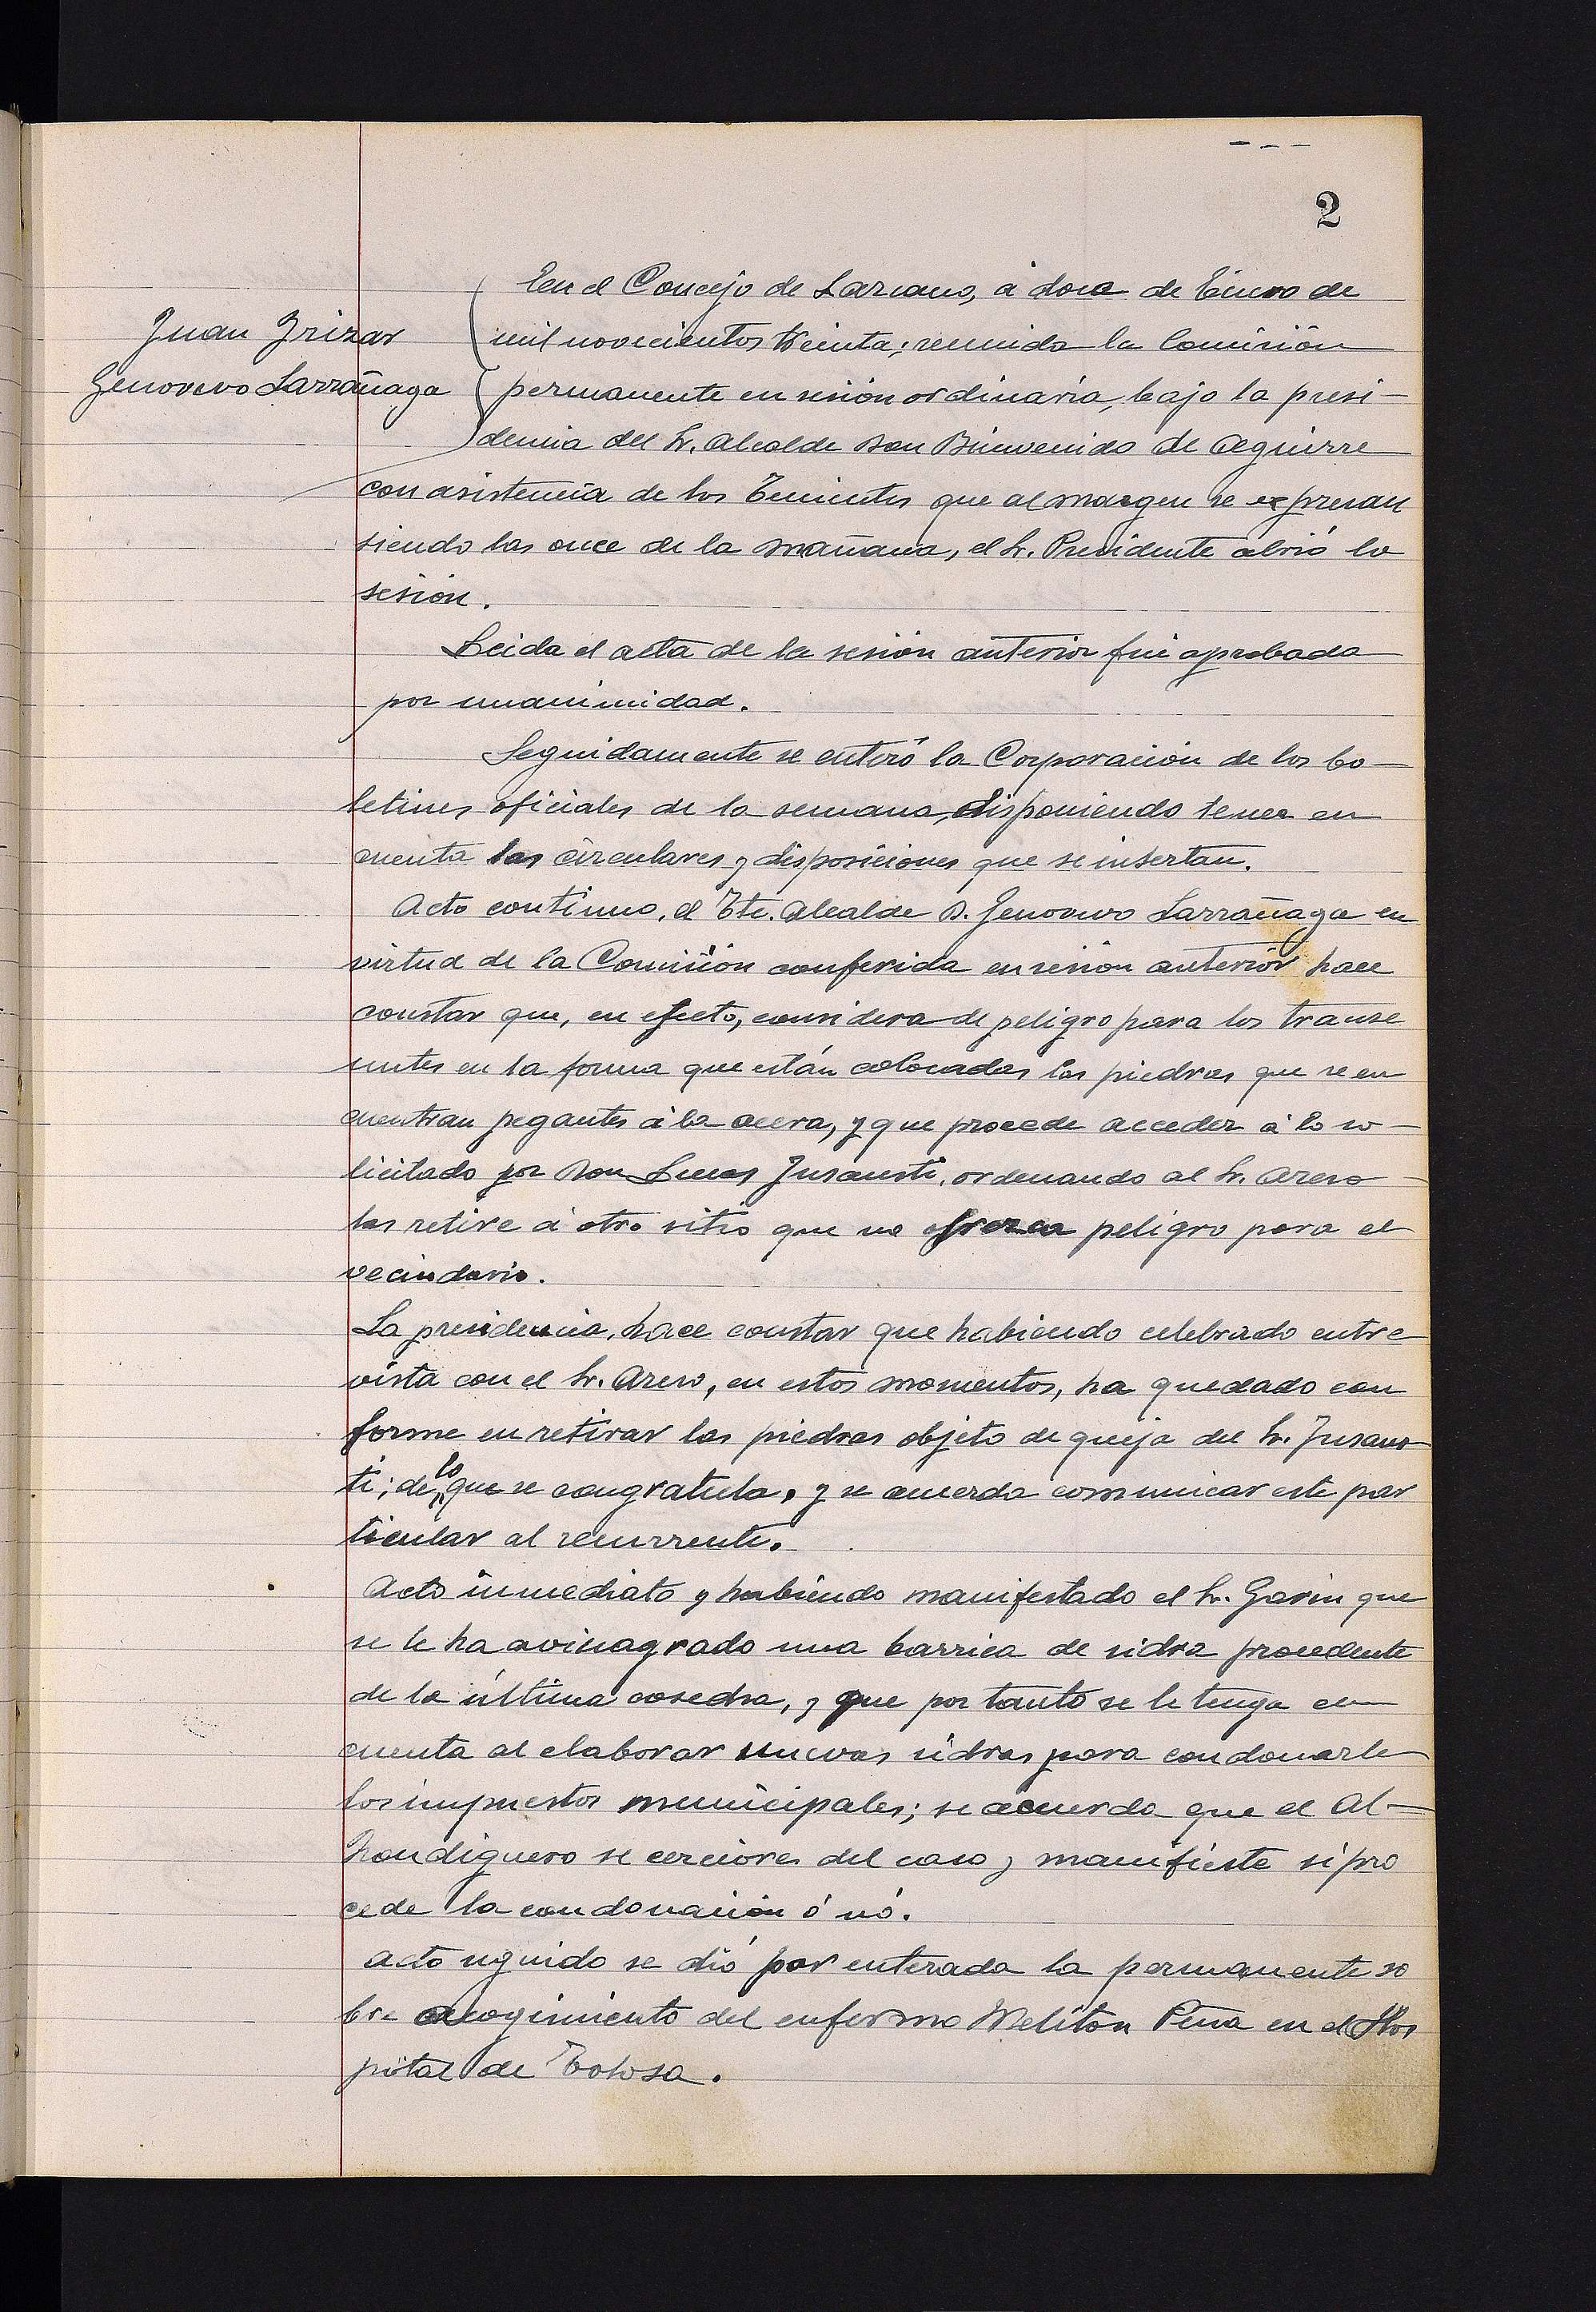 2
Juan Irizar
Genovevo Larrañaga
En el Concejo de Lazcano, á doce de Enero de
mil novecientos treinta; reunida la Comisión
permanente en sesión ordinaria, bajo la presi-
dencia del Sr. Alcalde Don Bienvenido de Aguirre
con asistencia de los Tenientes que al margen se expresan
siendo las once de la mañana, el Sr. Presidente abrió la
sesión.
Leida el acta de la sesión anterior fué aprobada
por unanimidad.
Seguidamente se enteró la Corporación de los bo-
letines oficiales de la semana, disponiendo tener en
cuenta las circulares y disposiciones que se insertan.
Acto continuo, el Tte. Alcalde D. Genovevo Larrañaga en
virtud de la Comisión conferida en sesión anterior hace
constar que, en efecto, considera de peligro para los transe
untes en la forma que están colocadas las piedras que se en
cuentran pegantes á la acera, y que procede acceder á lo so-
licitado por Don Lucas Jusausti, ordenando al Sr. Areso
las retire á otro sitio que no ofrezca peligro para el
vecindario.
La presidencia, hace constar que habiendo celebrado entre
vista con el Sr. Areso, en estos momentos, ha quedado con
forme en retirar las piedras objeto de queja del Sr. Jusaus
ti; de lo que se congratula, y se acuerda comunicar este par
ticular al recurrente.
Acto inmediato y habiendo manifestado el Sr. Garin que
se le ha avinagrado una barrica de sidra procedente
de la última cosecha, y que por tanto se le tenga en
cuenta al elaborar nuevas sidras para condonarle
los impuestos municipales; se acuerda que el Al-
hondiguero se cerciore del caso y manifieste si pro
cede la condonación ó nó.
Acto seguido se dió por enterada la permanente so
bre acogimiento del enfermo Meliton Peña en el Hos
pital de Tolosa.